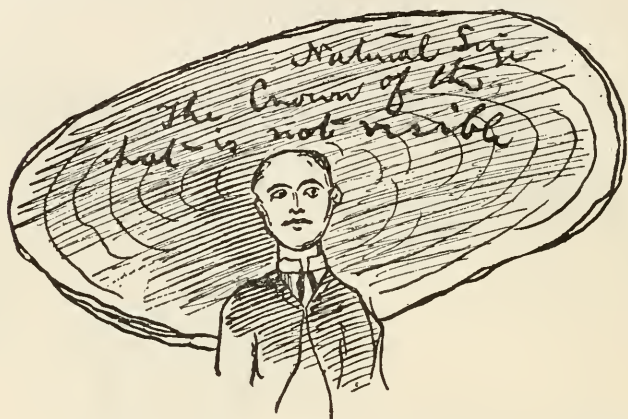 Natural Size
The Crown of the
hat is not visible